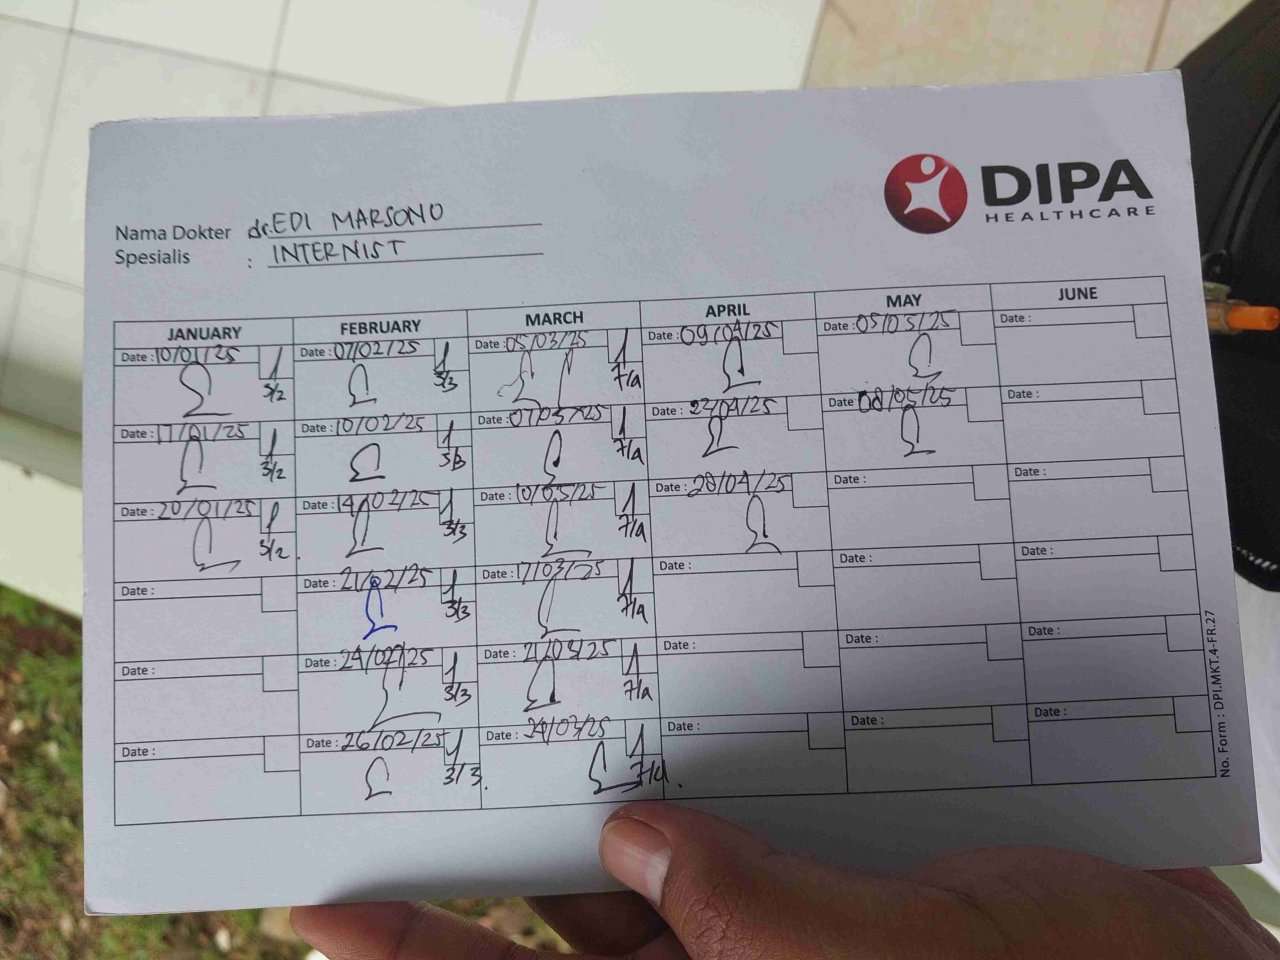 DIPA
HEALTHCARE
Nama Dokter dr. EDI MARSONO
Spesialis : INTERNIST
JANUARY FEBRUARY MARCH APRIL MAY JUNE
Date : 10/01/25 Date : 07/02/25 Date : 05/03/25 Date : 09/04/25 Date : 05/05/25 Date :
3/2 3/3 7/a
Date : 17/01/25 Date : 10/02/25 Date : 07/03/25 Date : 22/04/25 Date : 08/05/25 Date :
3/2 3/3 7/a
Date : 20/01/25 Date : 14/02/25 Date : 10/03/25 Date : 28/04/25 Date : Date :
3/2 3/3 7/a
Date : Date : 21/02/25 Date : 17/03/25 Date : Date : Date :
3/3 7/a
Date : Date : 24/02/25 Date : 21/03/25 Date : Date : Date :
3/3 7/a
Date : Date : 26/02/25 Date : 24/03/25 Date : Date : Date :
3/3. 7/a.
No. Form : DPI.MKT.4-FR.27